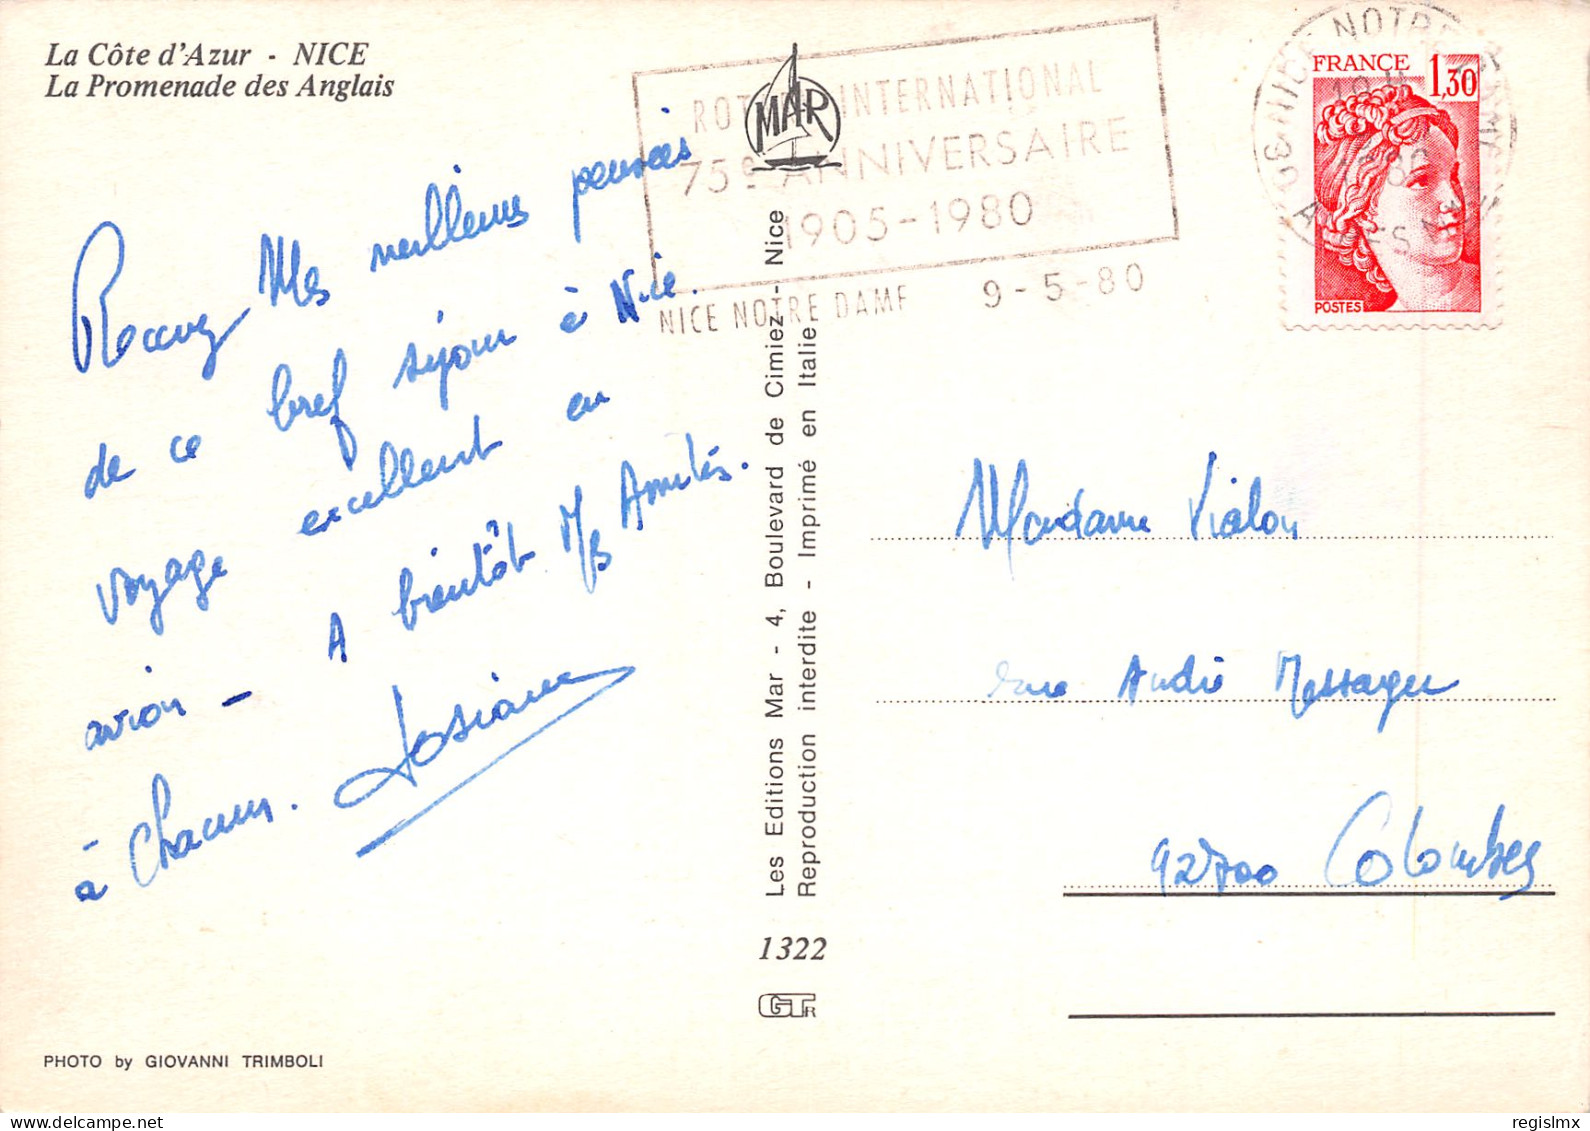 La Côte d'Azur - NICE
La Promenade des Anglais
MAR
ROT INTERNATIONAL
75e ANNIVERSAIRE
1905-1980
NICE NOTRE DAME 9-5-80
06 NICE NOTRE DAME
FRANCE 1,30
POSTES
Recevez Mes meilleurs pensées
de ce bref séjour à Nice.
Voyage excellent en
avion - A bientôt Amitiés.
à chacun. Josiane
Les Editions Mar - 4, Boulevard de Cimiez - Nice
Reproduction interdite - Imprimé en Italie
Madame Vialon
rue André Messager
92700 Colombes
1322
GTR
PHOTO by GIOVANNI TRIMBOLI
regislmx